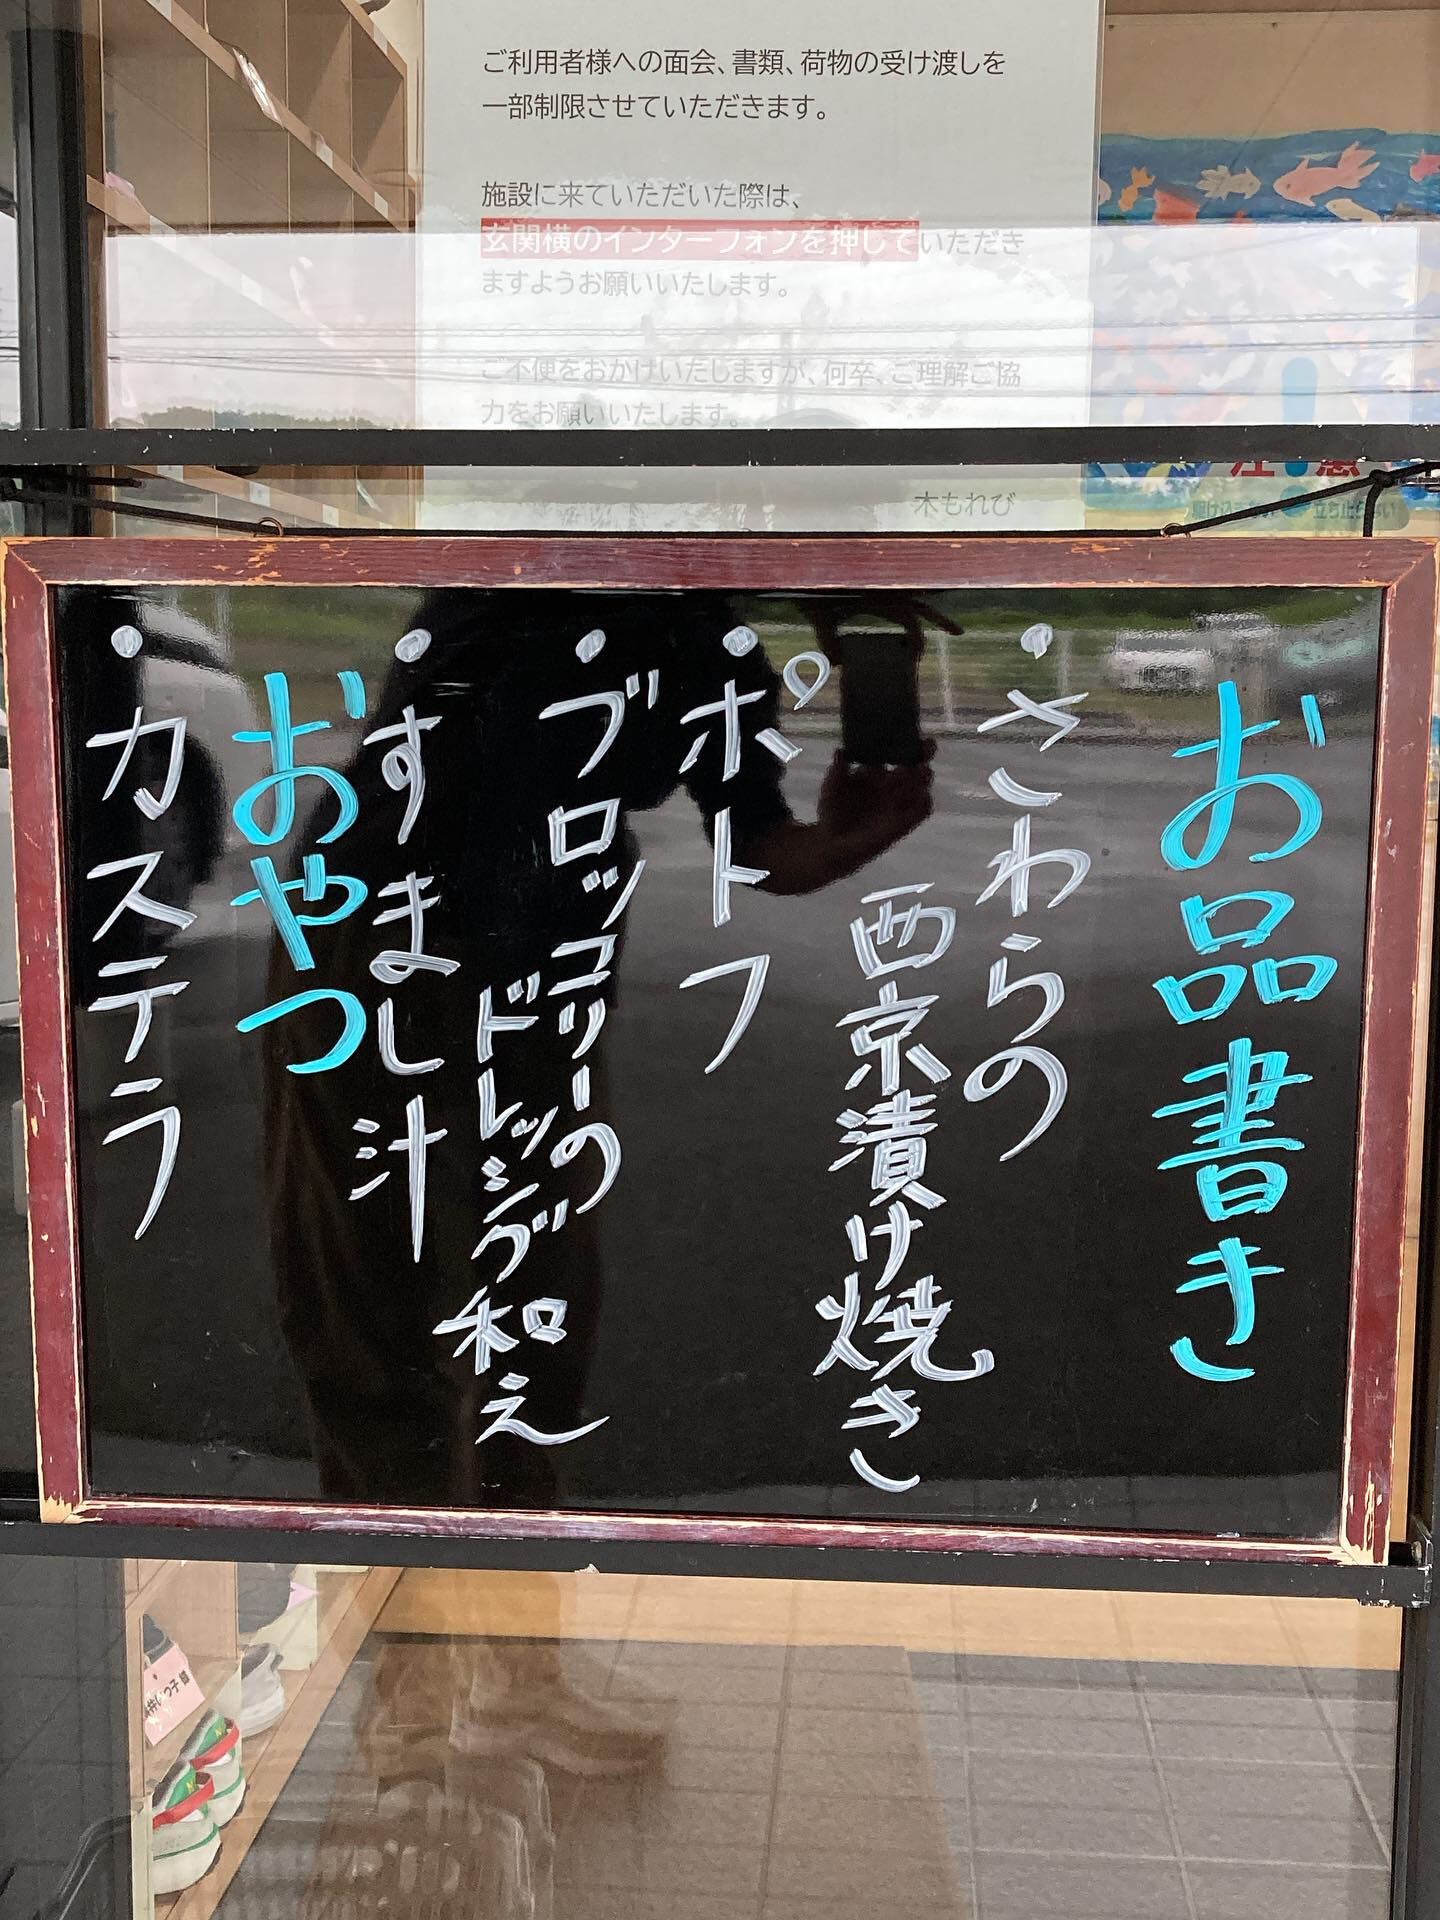 ご利用者様への面会、書類、荷物の受け渡しを
一部制限させていただきます。
施設に来ていただいた際は、
玄関横のインターフォンを押していただき
ますようお願いいたします。
ご不便をおかけいたしますが、何卒、ご理解ご協
力をお願いいたします。
木もれび
お品書き
・さわらの
西京漬け焼き
・ポトフ
・ブロッコリーの
ドレッシング和え
・すまし汁
おやつ
・カステラ